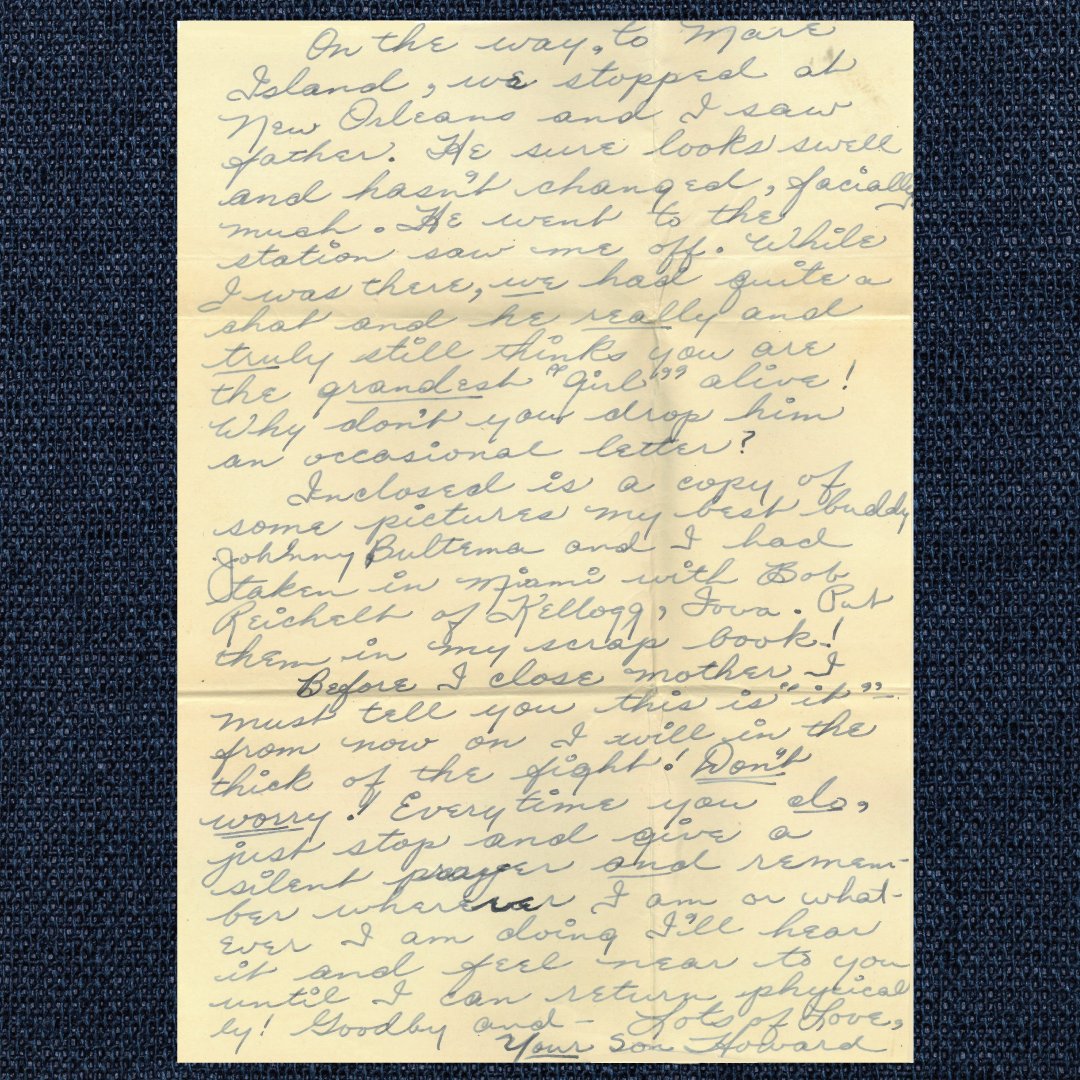 On the way, to Mare
Island, we stopped at
New Orleans and I saw
father. He sure looks swell
and hasn't changed, facially,
much. He went to the
station saw me off. While
I was there, we had quite a
chat and he really and
truly still thinks you are
the grandest "girl" alive!
Why don't you drop him
an occasional letter?
Inclosed is a copy of
some pictures my best buddy
Johnny Bultema and I had
taken in Miami with Bob
Reichelt of Kellogg, Iowa. Put
them in my scrap book!
Before I close mother I
must tell you this is "it"-
from now on I will in the
thick of the fight! Don't
worry! Everytime you do,
just stop and give a
silent prayer and remem-
ber wherever I am or what-
ever I am doing I'll hear
it and feel near to you
until I can return physical
ly! Goodby and- Lots of Love,
Your Son Howard